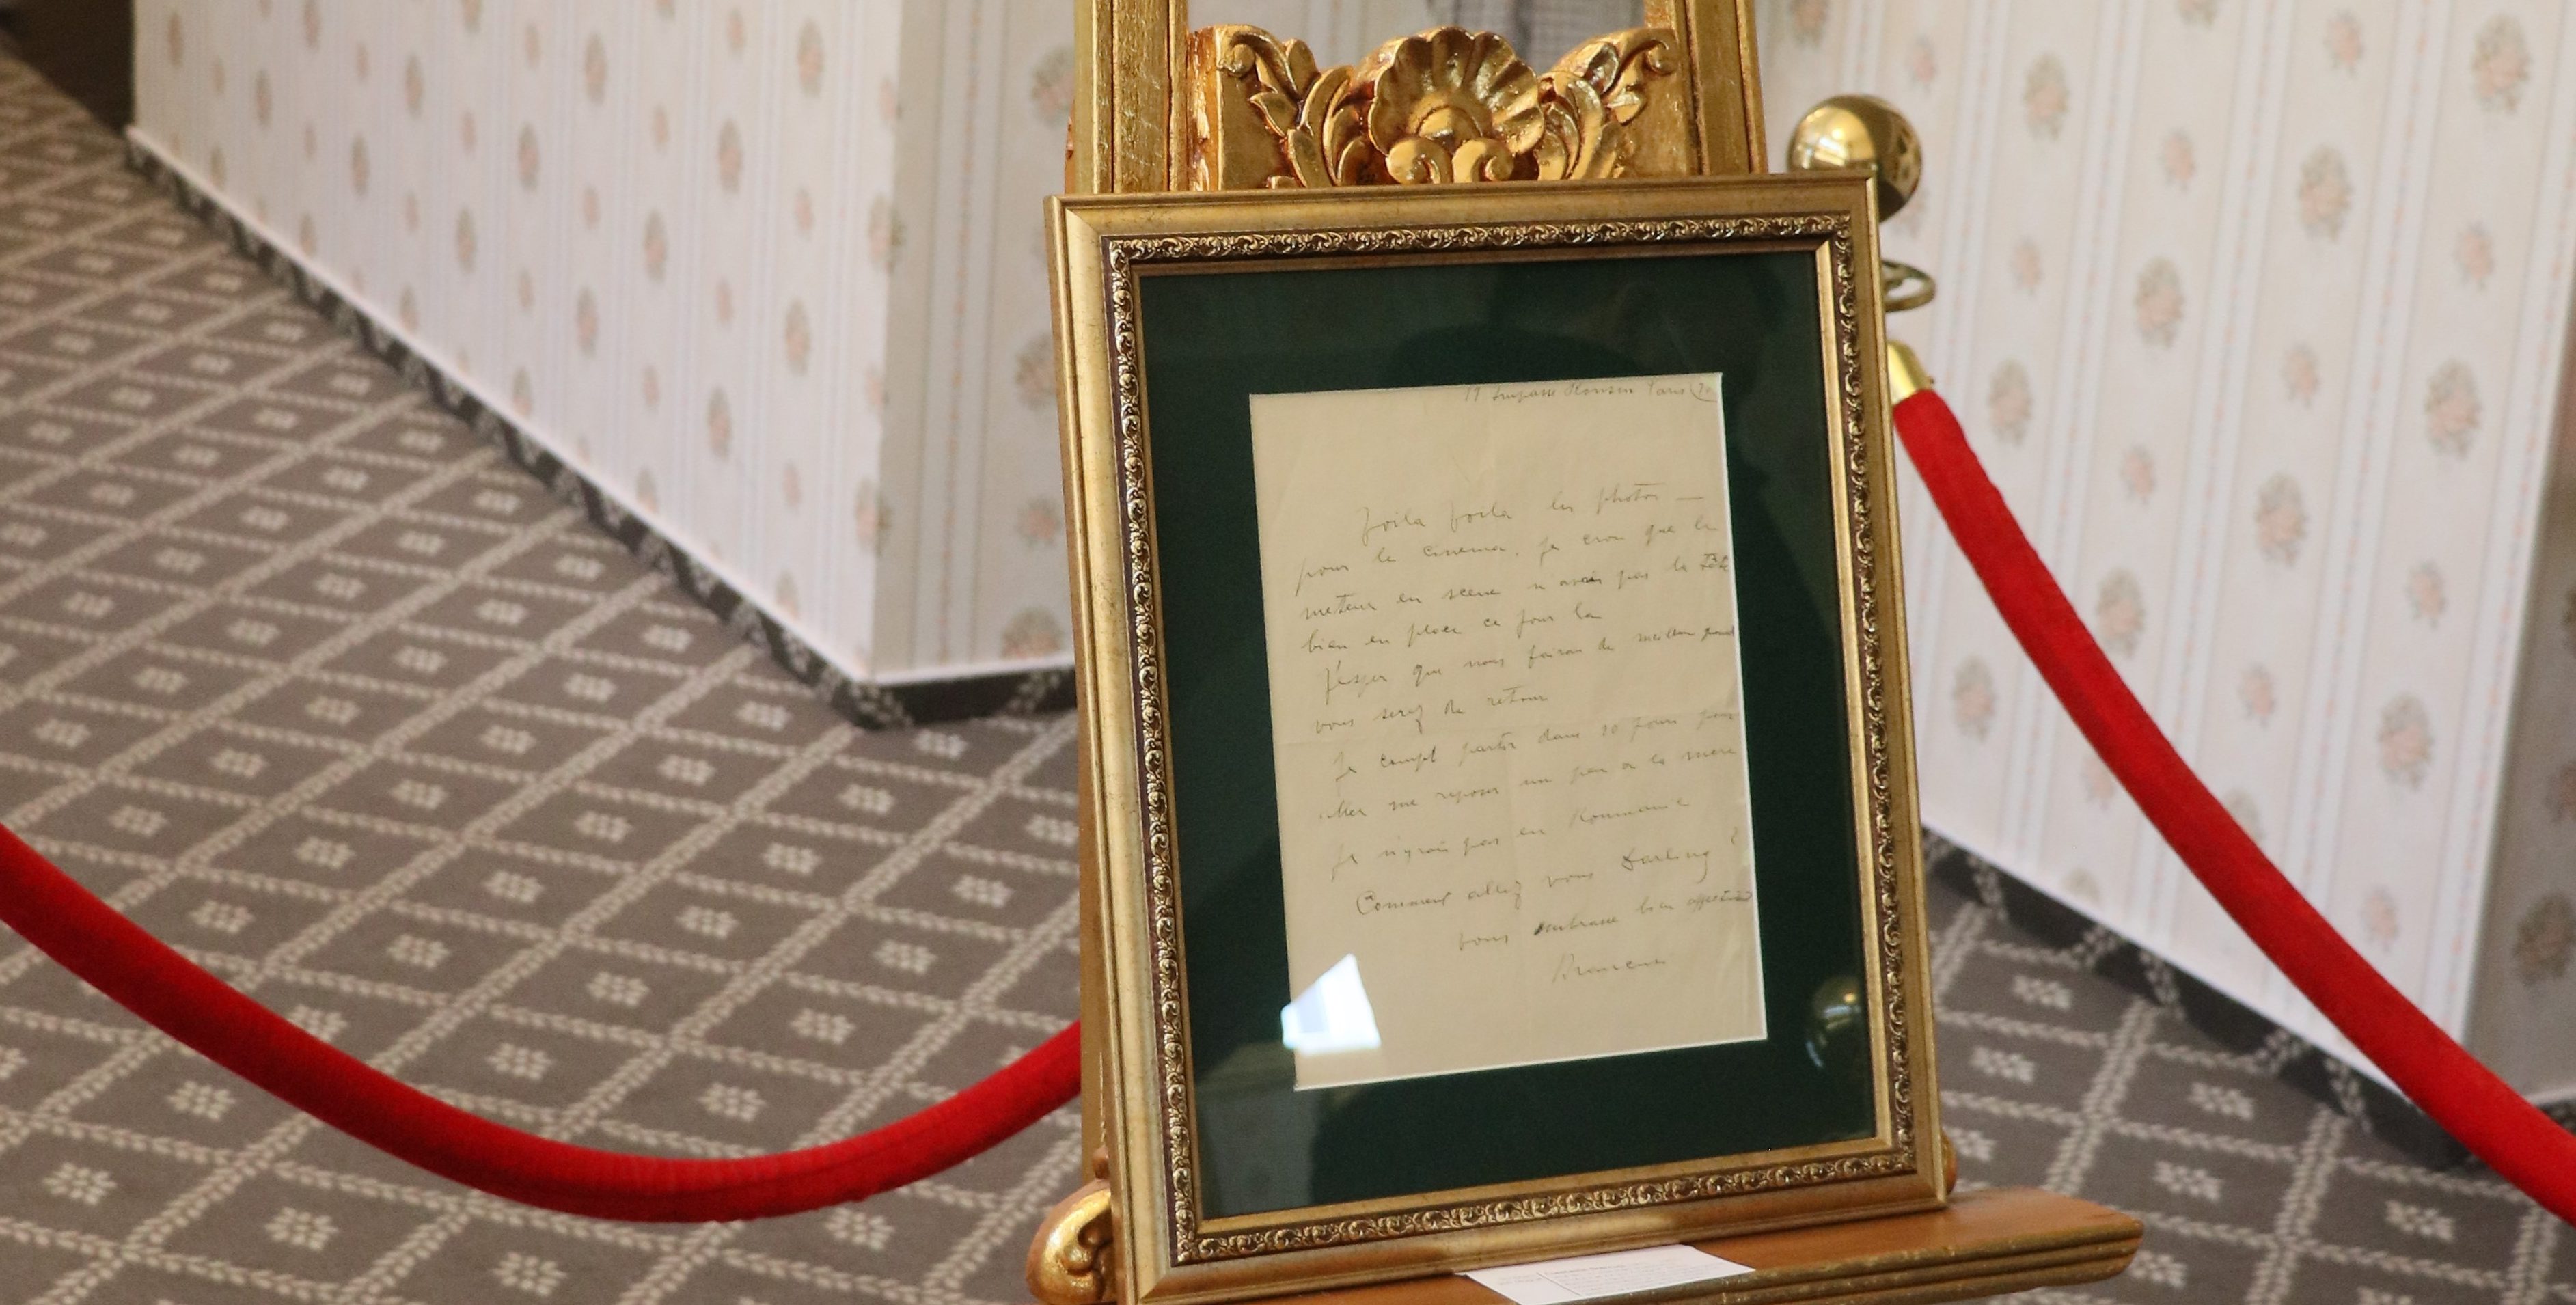 11 Impasse Ronsin Paris (15
Voila Voila les photos —
pour le cinema, je croi que le
meteur en scene n'avais pas la tête
bien en place ce jour la
J'esper que nous fairon de meilleur quand
vous serez de retour
Je compt partir dans 10 jours pour
aller me reposer un peu a la mere
Je n'yrai pas en Roumanie
Comment allez vous Darling ?
vous embrasse bien
Brancusi